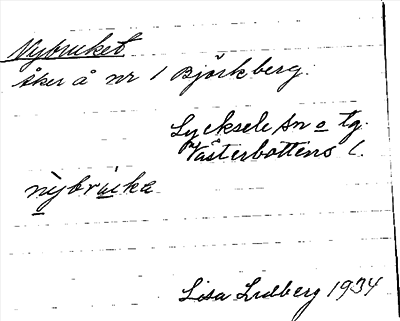 Nybruket
åker å nr 1 Björkberg.
Lycksele sn o tg.
Västerbottens l.
nỳbruka
Lisa Lidberg 1934